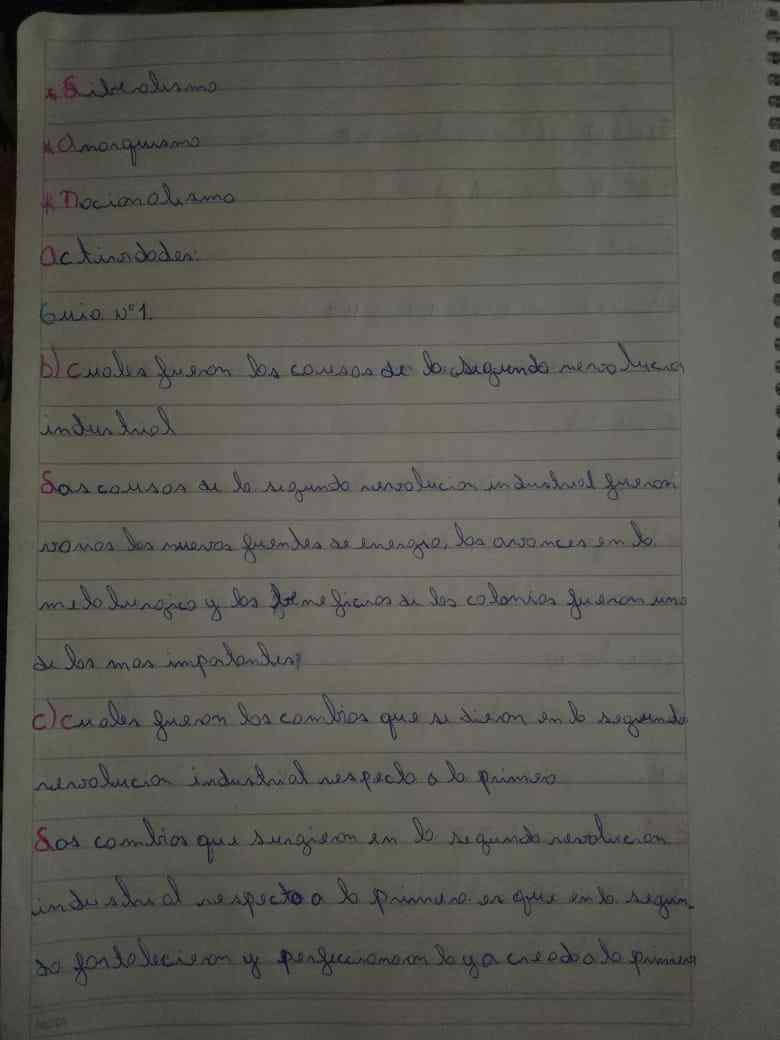 * Liberalismo
* Anarquismo
* Nacionalismo
Actividades:
Guia N°1.
b) Cuales fueron las causas de la segunda revolucion
industrial
Las causas de la segunda revolucion industrial fueron
varias las nuevas fuentes de energia, los avances en la
metalurgica y los beneficios de las colonias fueron una
de las mas importantes
c) Cuales fueron los cambios que se dieron en la segunda
revolucion industrial respecto a la primera
Los cambios que surgieron en la segunda revolucion
industrial respecto a la primera es que en la segun
da fortalecieron y perfeccionaron lo ya creado a la primera